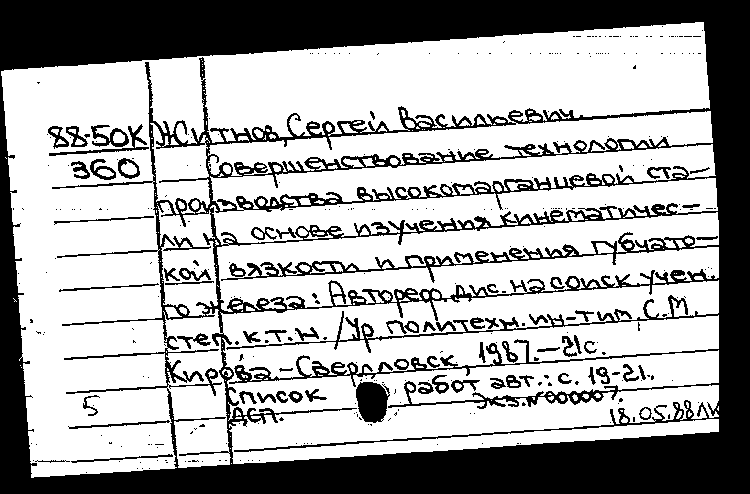 88-50К Житнов, Сергей Васильевич.
360 Совершенствование технологии
производства высокомарганцевой ста-
ли на основе изучения кинематичес-
кой вязкости и применения губчато-
го железа: Автореф. дис. на соиск. учен.
степ. к.т.н. /Ур. политехн. ин-т им. С.М.
Кирова.-Свердловск, 1987.-21с.
5 Список работ авт.: с. 19-21.
ДСП. Экз.№000007.
18.05.88 ЛК